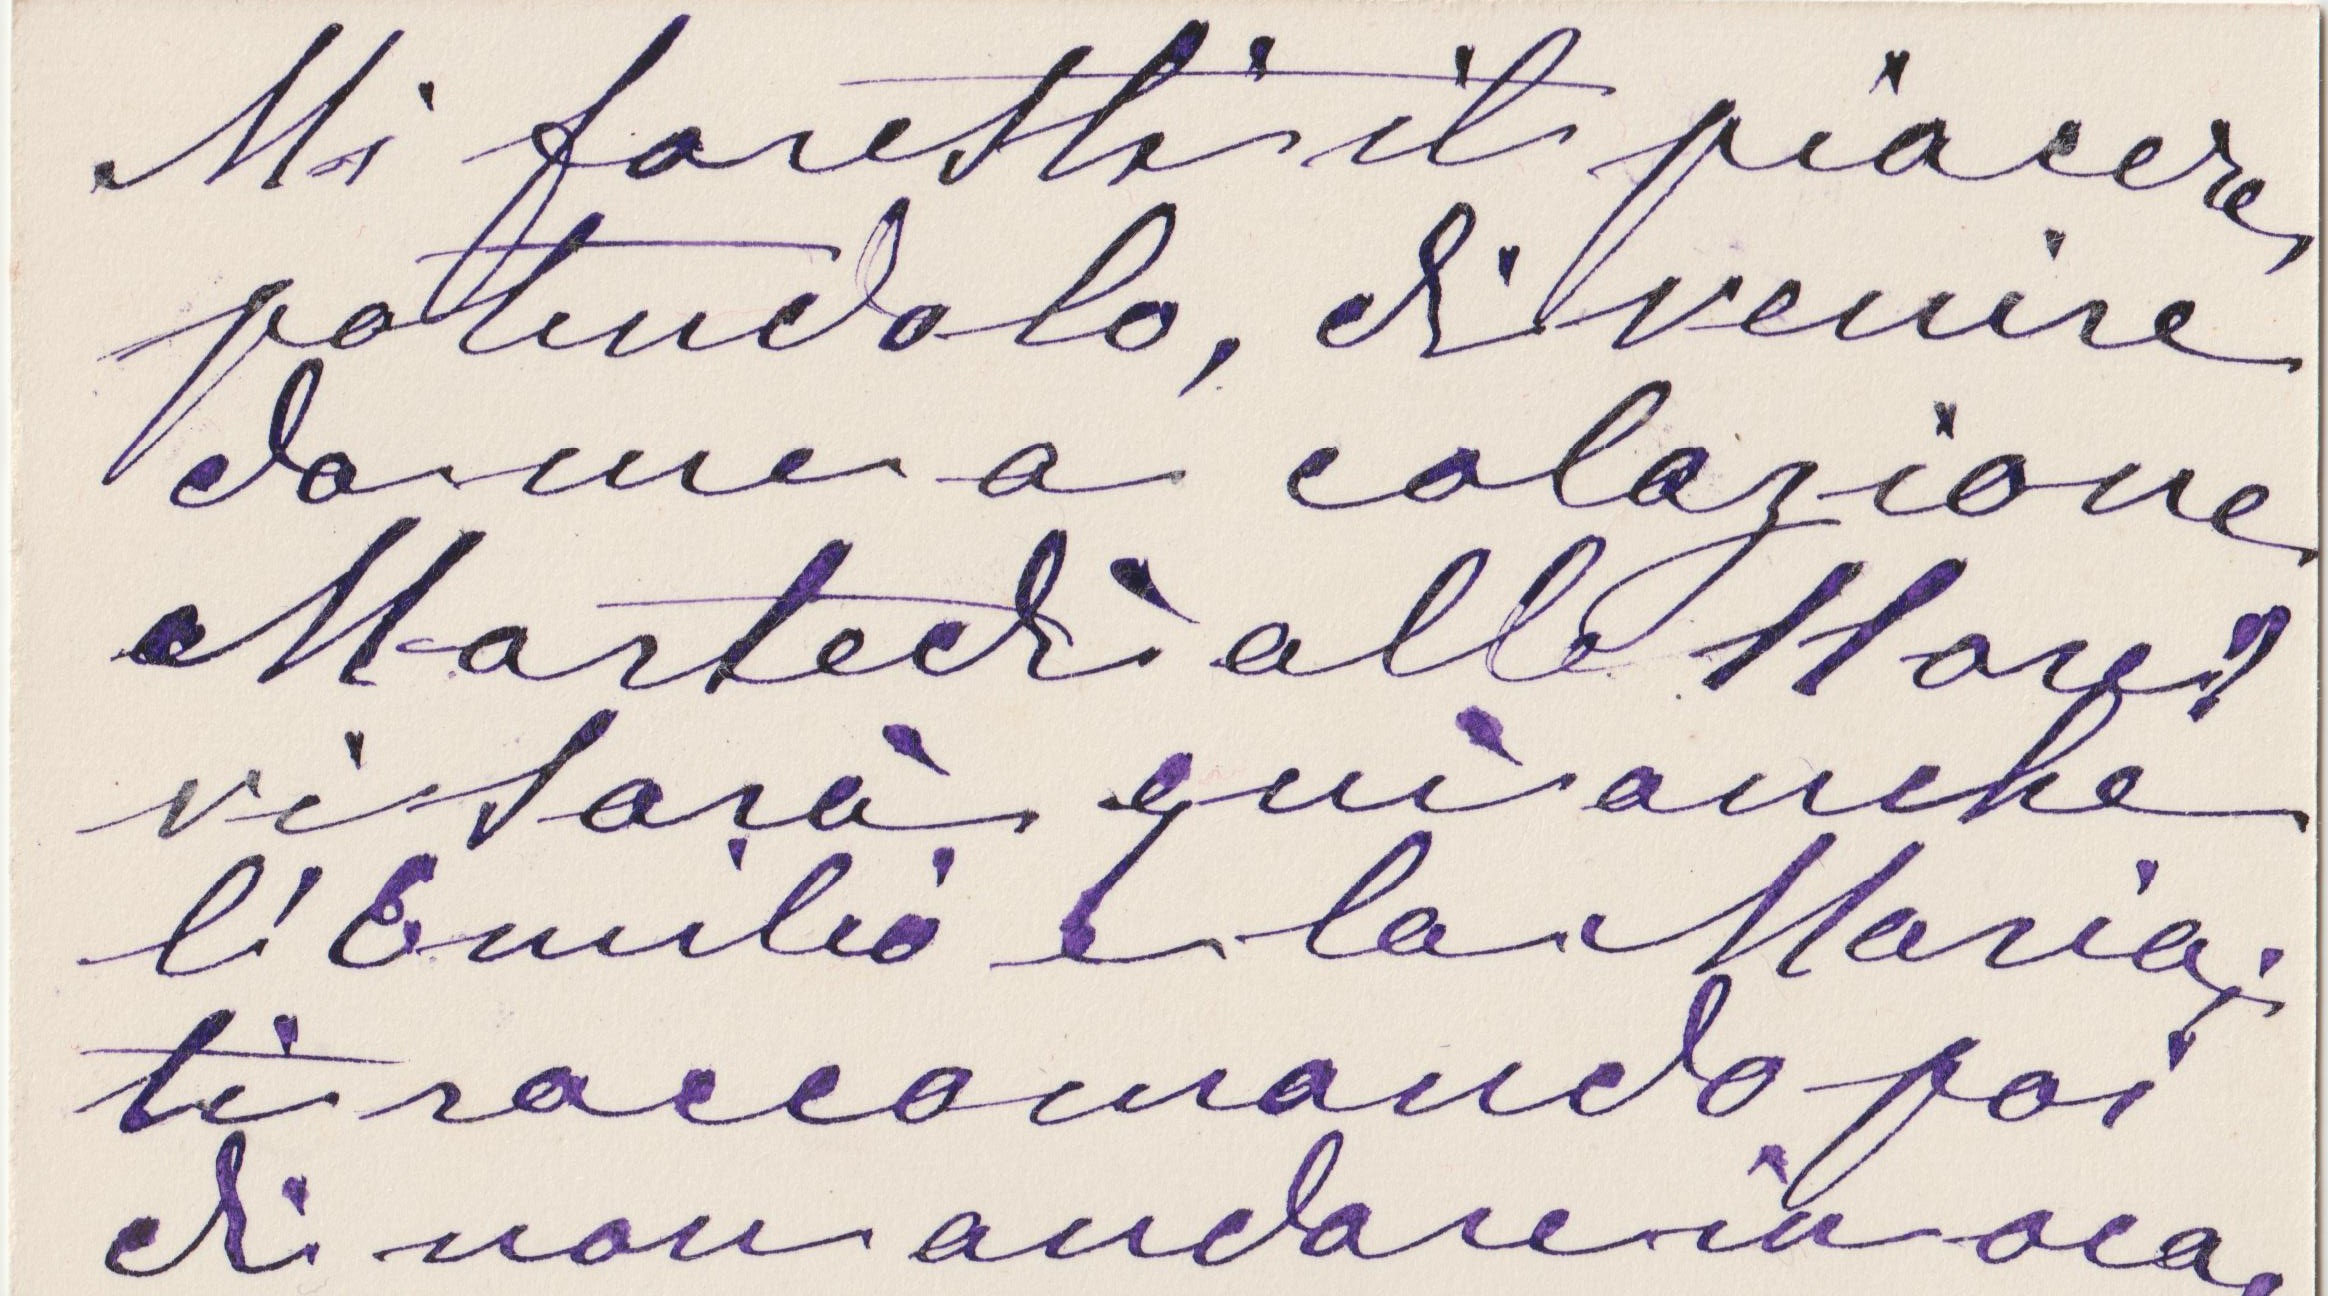 Mi faresti il piacere,
potendolo, di venire
da me a colazione
Martedì alle 11 ore?
vi sarà quì anche
l'Emilio e la Maria;
ti raccomando poi
di non andare in oca,